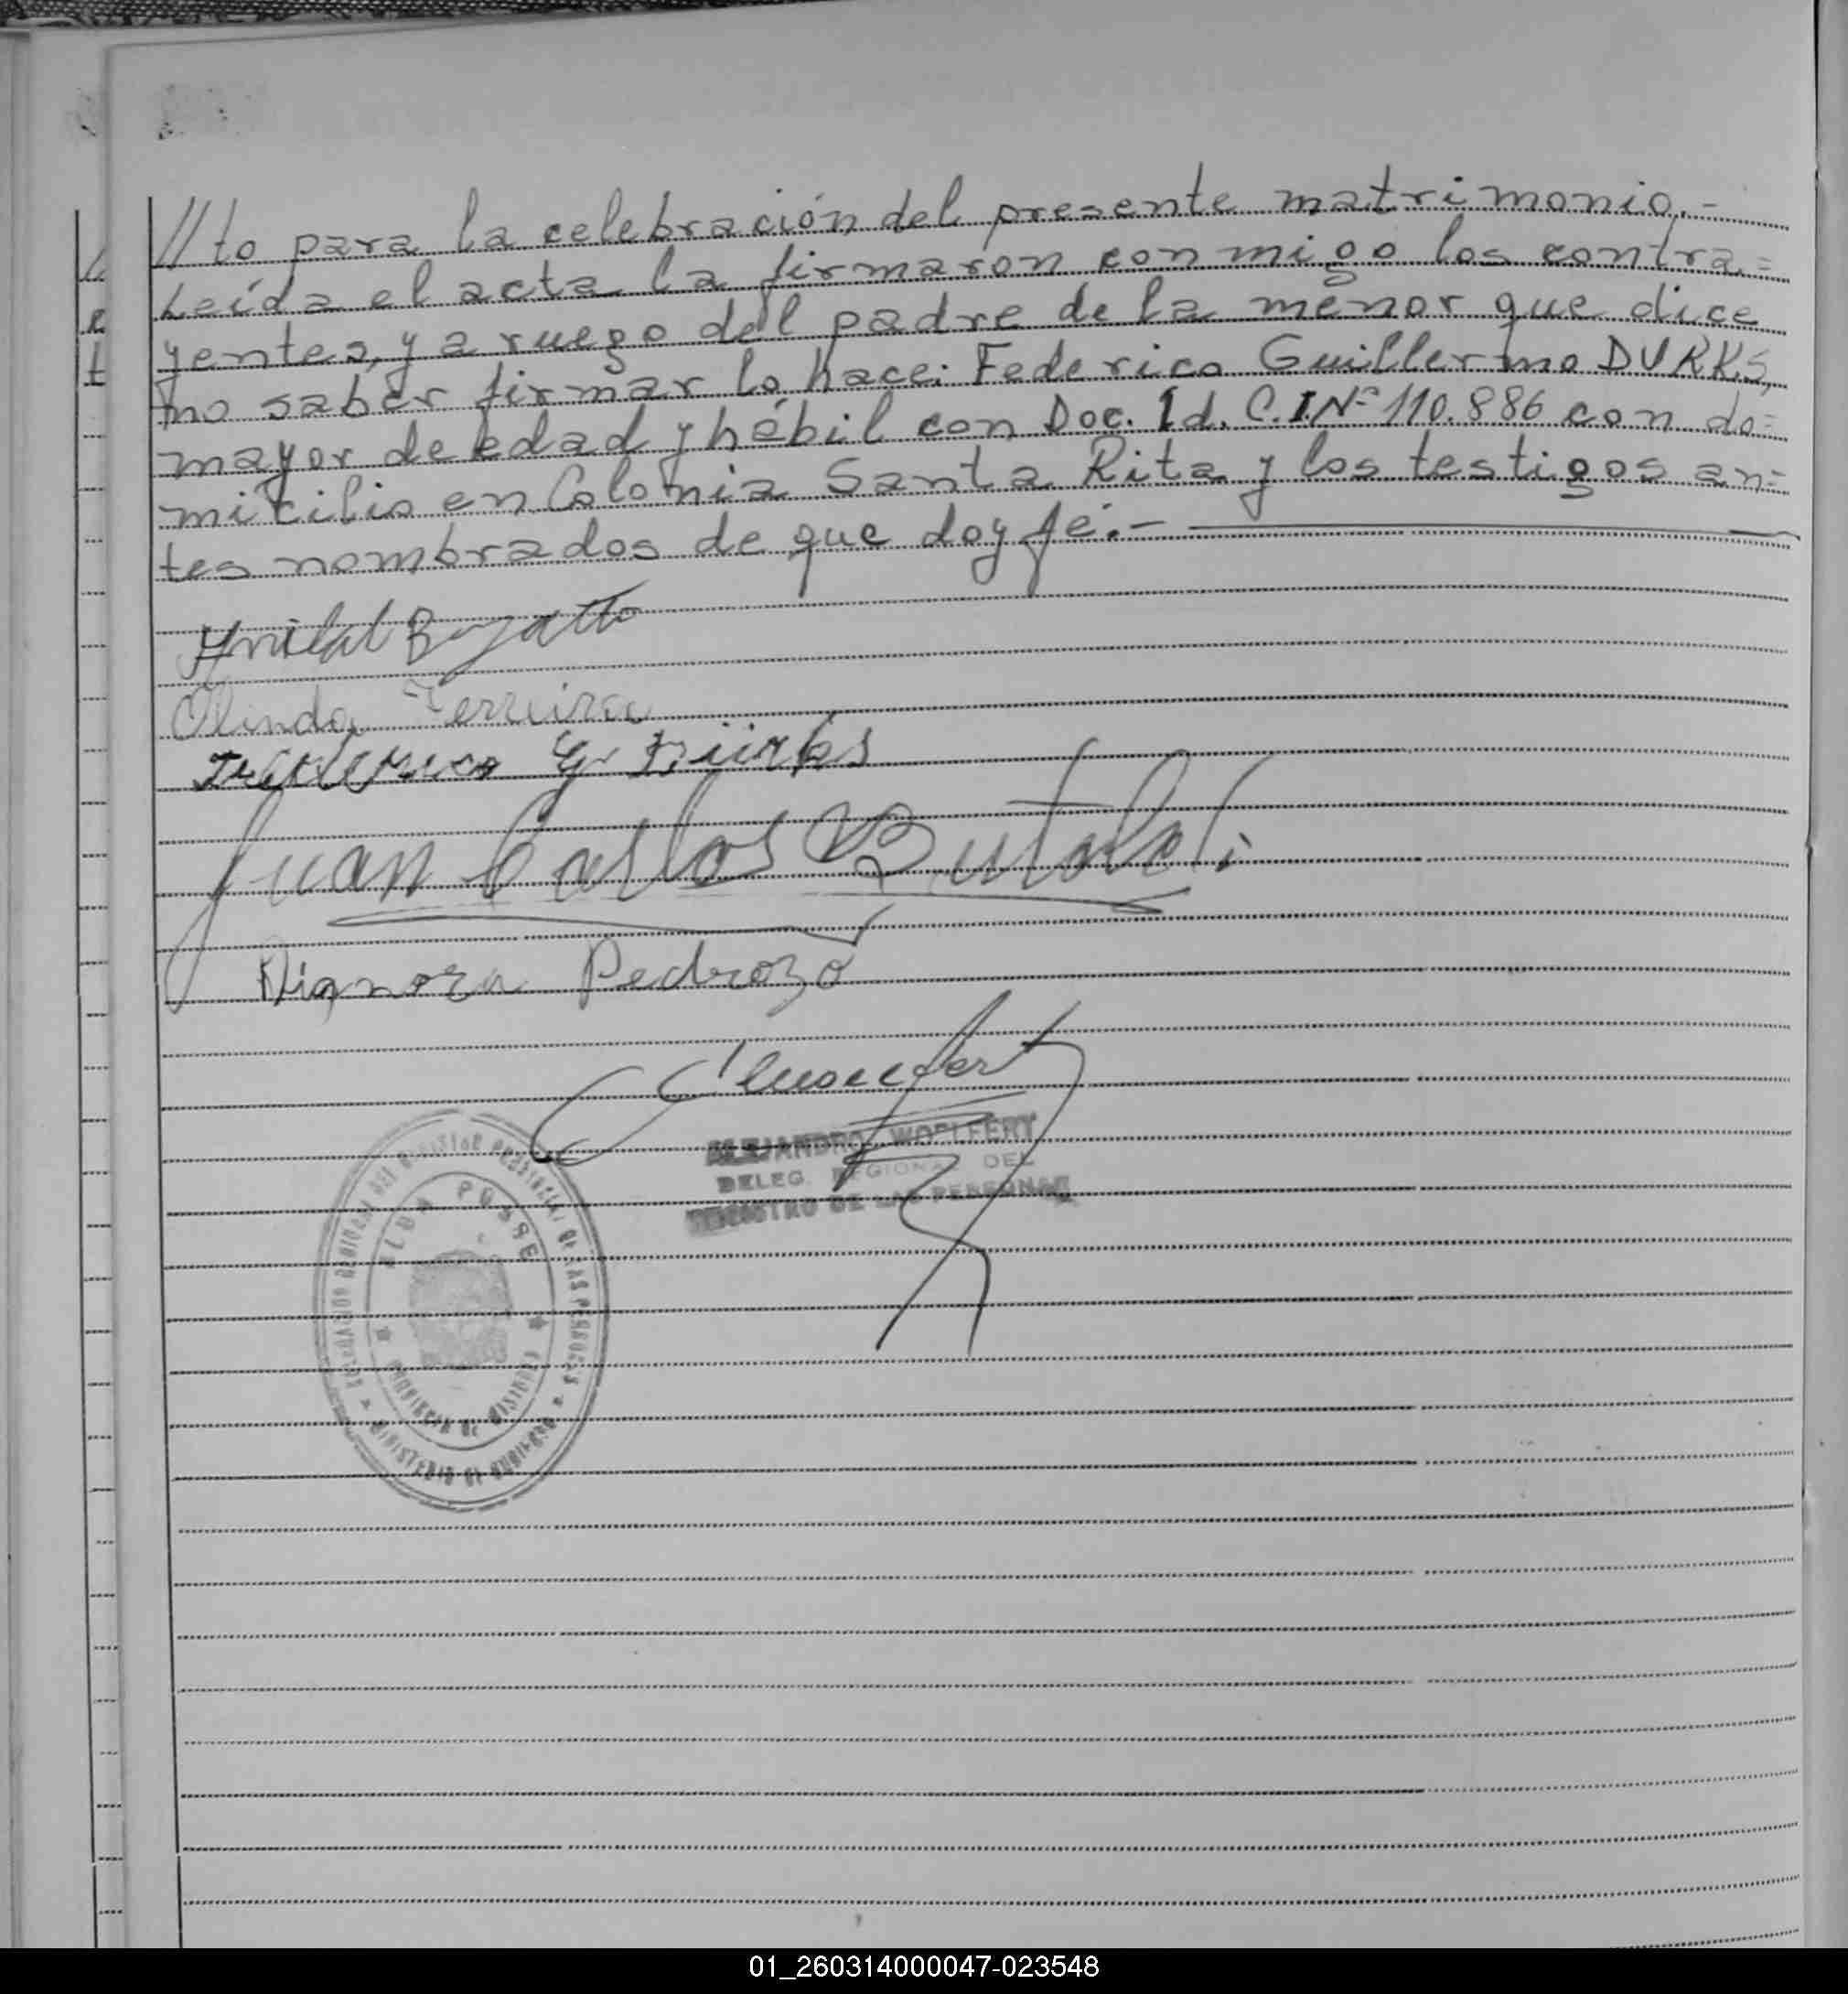 //to para la celebración del presente matrimonio.-
Leída el acta la firmaron conmigo los contra=
yentes, y a ruego del padre de la menor que dice
no saber firmar lo hace: Federico Guillermo DURKS,
mayor de edad y hábil con Doc. Id. C.I.Nº 110.886 con do=
micilio en Colonia Santa Rita y los testigos an=
tes nombrados de que doy fé.-
Olinda Ferreira
G. Dürks
Juan Carlos
Dignora Pedrozo
ALEJANDRO WOELFERT
DELEG. REGIONAL DEL
REGISTRO DE LAS PERSONAS
ALDM POSSE
MINISTERIO DE GOBIERNO
01_260314000047-023548